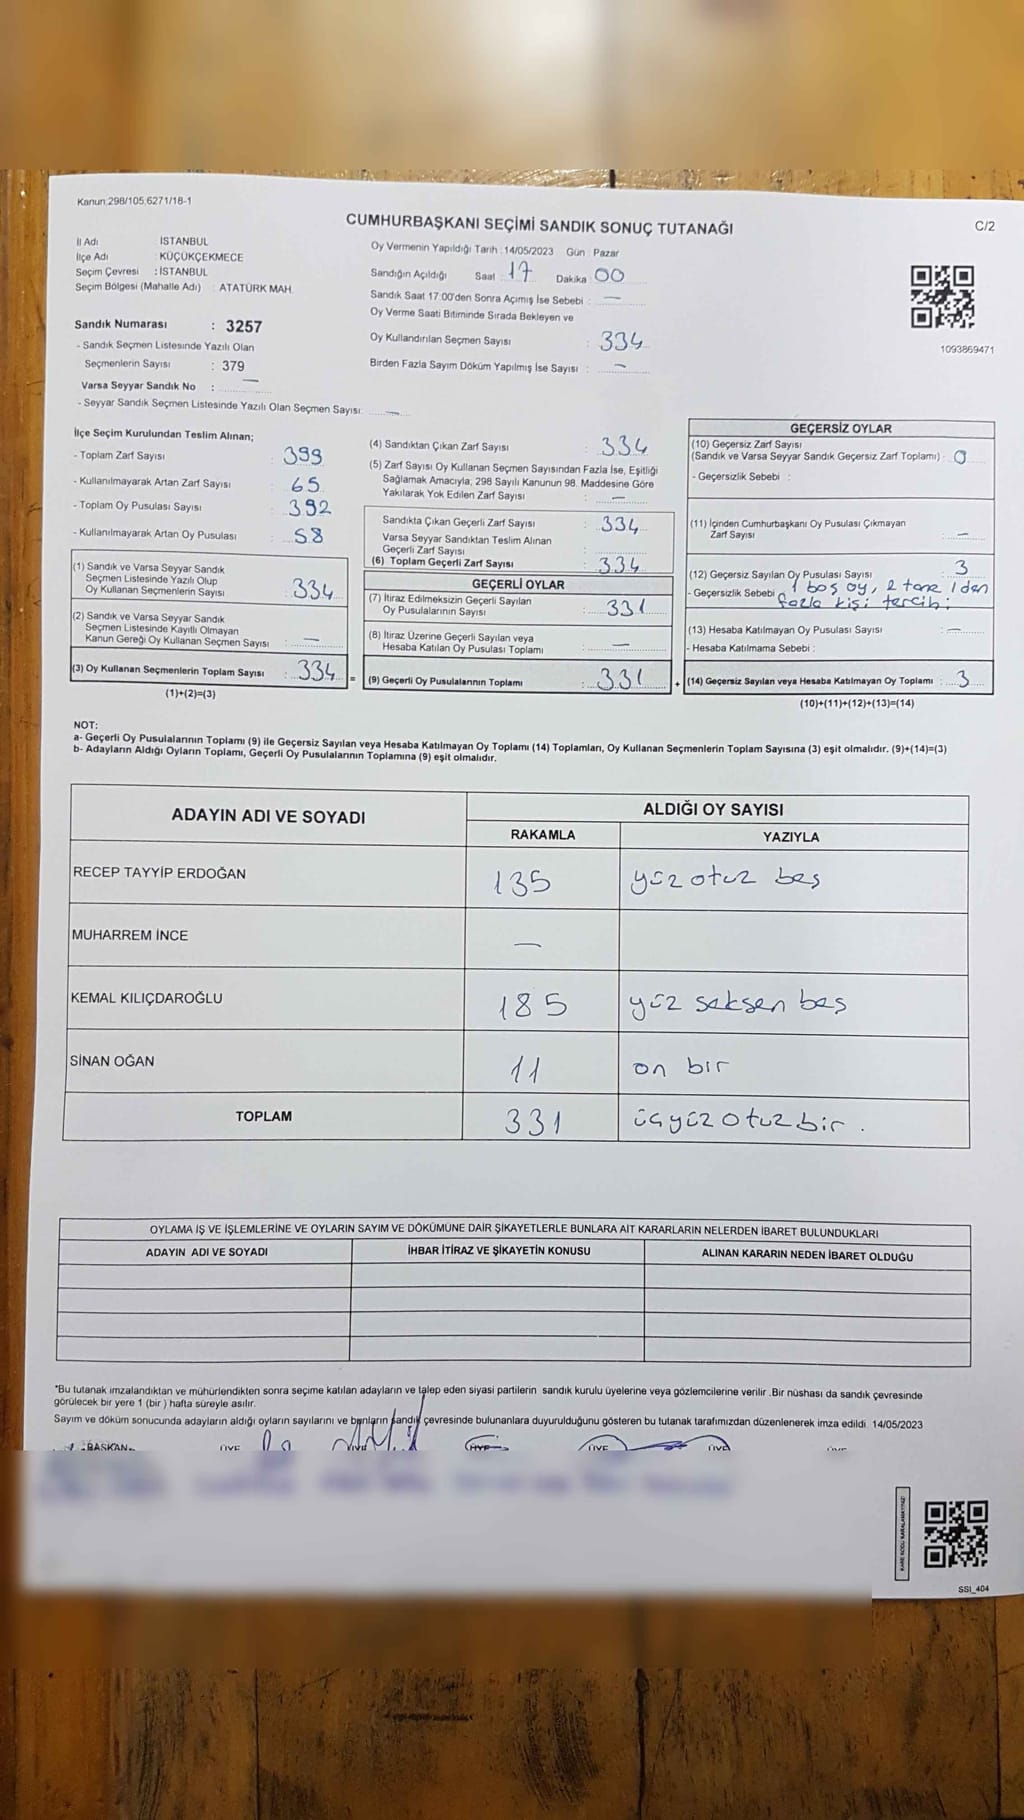 Kanun:298/105,6271/18-1
CUMHURBAŞKANI SEÇİMİ SANDIK SONUÇ TUTANAĞI
C/2
İl Adı : İSTANBUL
İlçe Adı : KÜÇÜKÇEKMECE
Seçim Çevresi : İSTANBUL
Seçim Bölgesi (Mahalle Adı) : ATATÜRK MAH.
Sandık Numarası : 3257
- Sandık Seçmen Listesinde Yazılı Olan
Seçmenlerin Sayısı : 379
Varsa Seyyar Sandık No : —
- Seyyar Sandık Seçmen Listesinde Yazılı Olan Seçmen Sayısı: —
Oy Vermenin Yapıldığı Tarih : 14/05/2023 Gün : Pazar
Sandığın Açıldığı Saat 17 Dakika 00
Sandık Saat 17:00'den Sonra Açımış İse Sebebi : —
Oy Verme Saati Bitiminde Sırada Bekleyen ve
Oy Kullandırılan Seçmen Sayısı : 334
Birden Fazla Sayım Döküm Yapılmış İse Sayısı : —
1093869471
İlçe Seçim Kurulundan Teslim Alınan;
- Toplam Zarf Sayısı : 399
- Kullanılmayarak Artan Zarf Sayısı : 65
- Toplam Oy Pusulası Sayısı : 392
- Kullanılmayarak Artan Oy Pusulası : 58
(1) Sandık ve Varsa Seyyar Sandık
Seçmen Listesinde Yazılı Olup
Oy Kullanan Seçmenlerin Sayısı : 334
(2) Sandık ve Varsa Seyyar Sandık
Seçmen Listesinde Kayıtlı Olmayan
Kanun Gereği Oy Kullanan Seçmen Sayısı : —
(3) Oy Kullanan Seçmenlerin Toplam Sayısı : 334 =
(1)+(2)=(3)
(4) Sandıktan Çıkan Zarf Sayısı : 334
(5) Zarf Sayısı Oy Kullanan Seçmen Sayısından Fazla İse, Eşitliği
Sağlamak Amacıyla; 298 Sayılı Kanunun 98. Maddesine Göre
Yakılarak Yok Edilen Zarf Sayısı : —
Sandıkta Çıkan Geçerli Zarf Sayısı : 334
Varsa Seyyar Sandıktan Teslim Alınan
Geçerli Zarf Sayısı :
(6) Toplam Geçerli Zarf Sayısı : 334
GEÇERLİ OYLAR
(7) İtiraz Edilmeksizin Geçerli Sayılan
Oy Pusulalarının Sayısı : 331
(8) İtiraz Üzerine Geçerli Sayılan veya
Hesaba Katılan Oy Pusulası Toplamı : —
(9) Geçerli Oy Pusulalarının Toplamı : 331 +
GEÇERSİZ OYLAR
(10) Geçersiz Zarf Sayısı
(Sandık ve Varsa Seyyar Sandık Geçersiz Zarf Toplamı) : 0
- Geçersizlik Sebebi :
(11) İçinden Cumhurbaşkanı Oy Pusulası Çıkmayan
Zarf Sayısı : —
(12) Geçersiz Sayılan Oy Pusulası Sayısı : 3
- Geçersizlik Sebebi 1 boş oy, 2 tane 1den
fazla kişi tercihi
(13) Hesaba Katılmayan Oy Pusulası Sayısı : —
- Hesaba Katılmama Sebebi :
(14) Geçersiz Sayılan veya Hesaba Katılmayan Oy Toplamı : 3
(10)+(11)+(12)+(13)=(14)
NOT:
a- Geçerli Oy Pusulalarının Toplamı (9) ile Geçersiz Sayılan veya Hesaba Katılmayan Oy Toplamı (14) Toplamları, Oy Kullanan Seçmenlerin Toplam Sayısına (3) eşit olmalıdır. (9)+(14)=(3)
b- Adayların Aldığı Oyların Toplamı, Geçerli Oy Pusulalarının Toplamına (9) eşit olmalıdır.
ADAYIN ADI VE SOYADI
ALDIĞI OY SAYISI
RAKAMLA YAZIYLA
RECEP TAYYİP ERDOĞAN 135 yüz otuz beş
MUHARREM İNCE —
KEMAL KILIÇDAROĞLU 185 yüz seksen beş
SİNAN OĞAN 11 on bir
TOPLAM 331 üçyüz otuz bir .
OYLAMA İŞ VE İŞLEMLERİNE VE OYLARIN SAYIM VE DÖKÜMÜNE DAİR ŞİKAYETLERLE BUNLARA AİT KARARLARIN NELERDEN İBARET BULUNDUKLARI
ADAYIN ADI VE SOYADI İHBAR İTİRAZ VE ŞİKAYETİN KONUSU ALINAN KARARIN NEDEN İBARET OLDUĞU
*Bu tutanak imzalandıktan ve mühürlendikten sonra seçime katılan adayların ve talep eden siyasi partilerin sandık kurulu üyelerine veya gözlemcilerine verilir .Bir nüshası da sandık çevresinde
görülecek bir yere 1 (bir ) hafta süreyle asılır.
Sayım ve döküm sonucunda adayların aldığı oyların sayılarını ve bunların sandık çevresinde bulunanlara duyurulduğunu gösteren bu tutanak tarafımızdan düzenlenerek imza edildi. 14/05/2023
BAŞKAN ÜYE ÜYE ÜYE ÜYE ÜYE ÜYE
KARE KODU KARALAMAYINIZ!
SSI_404